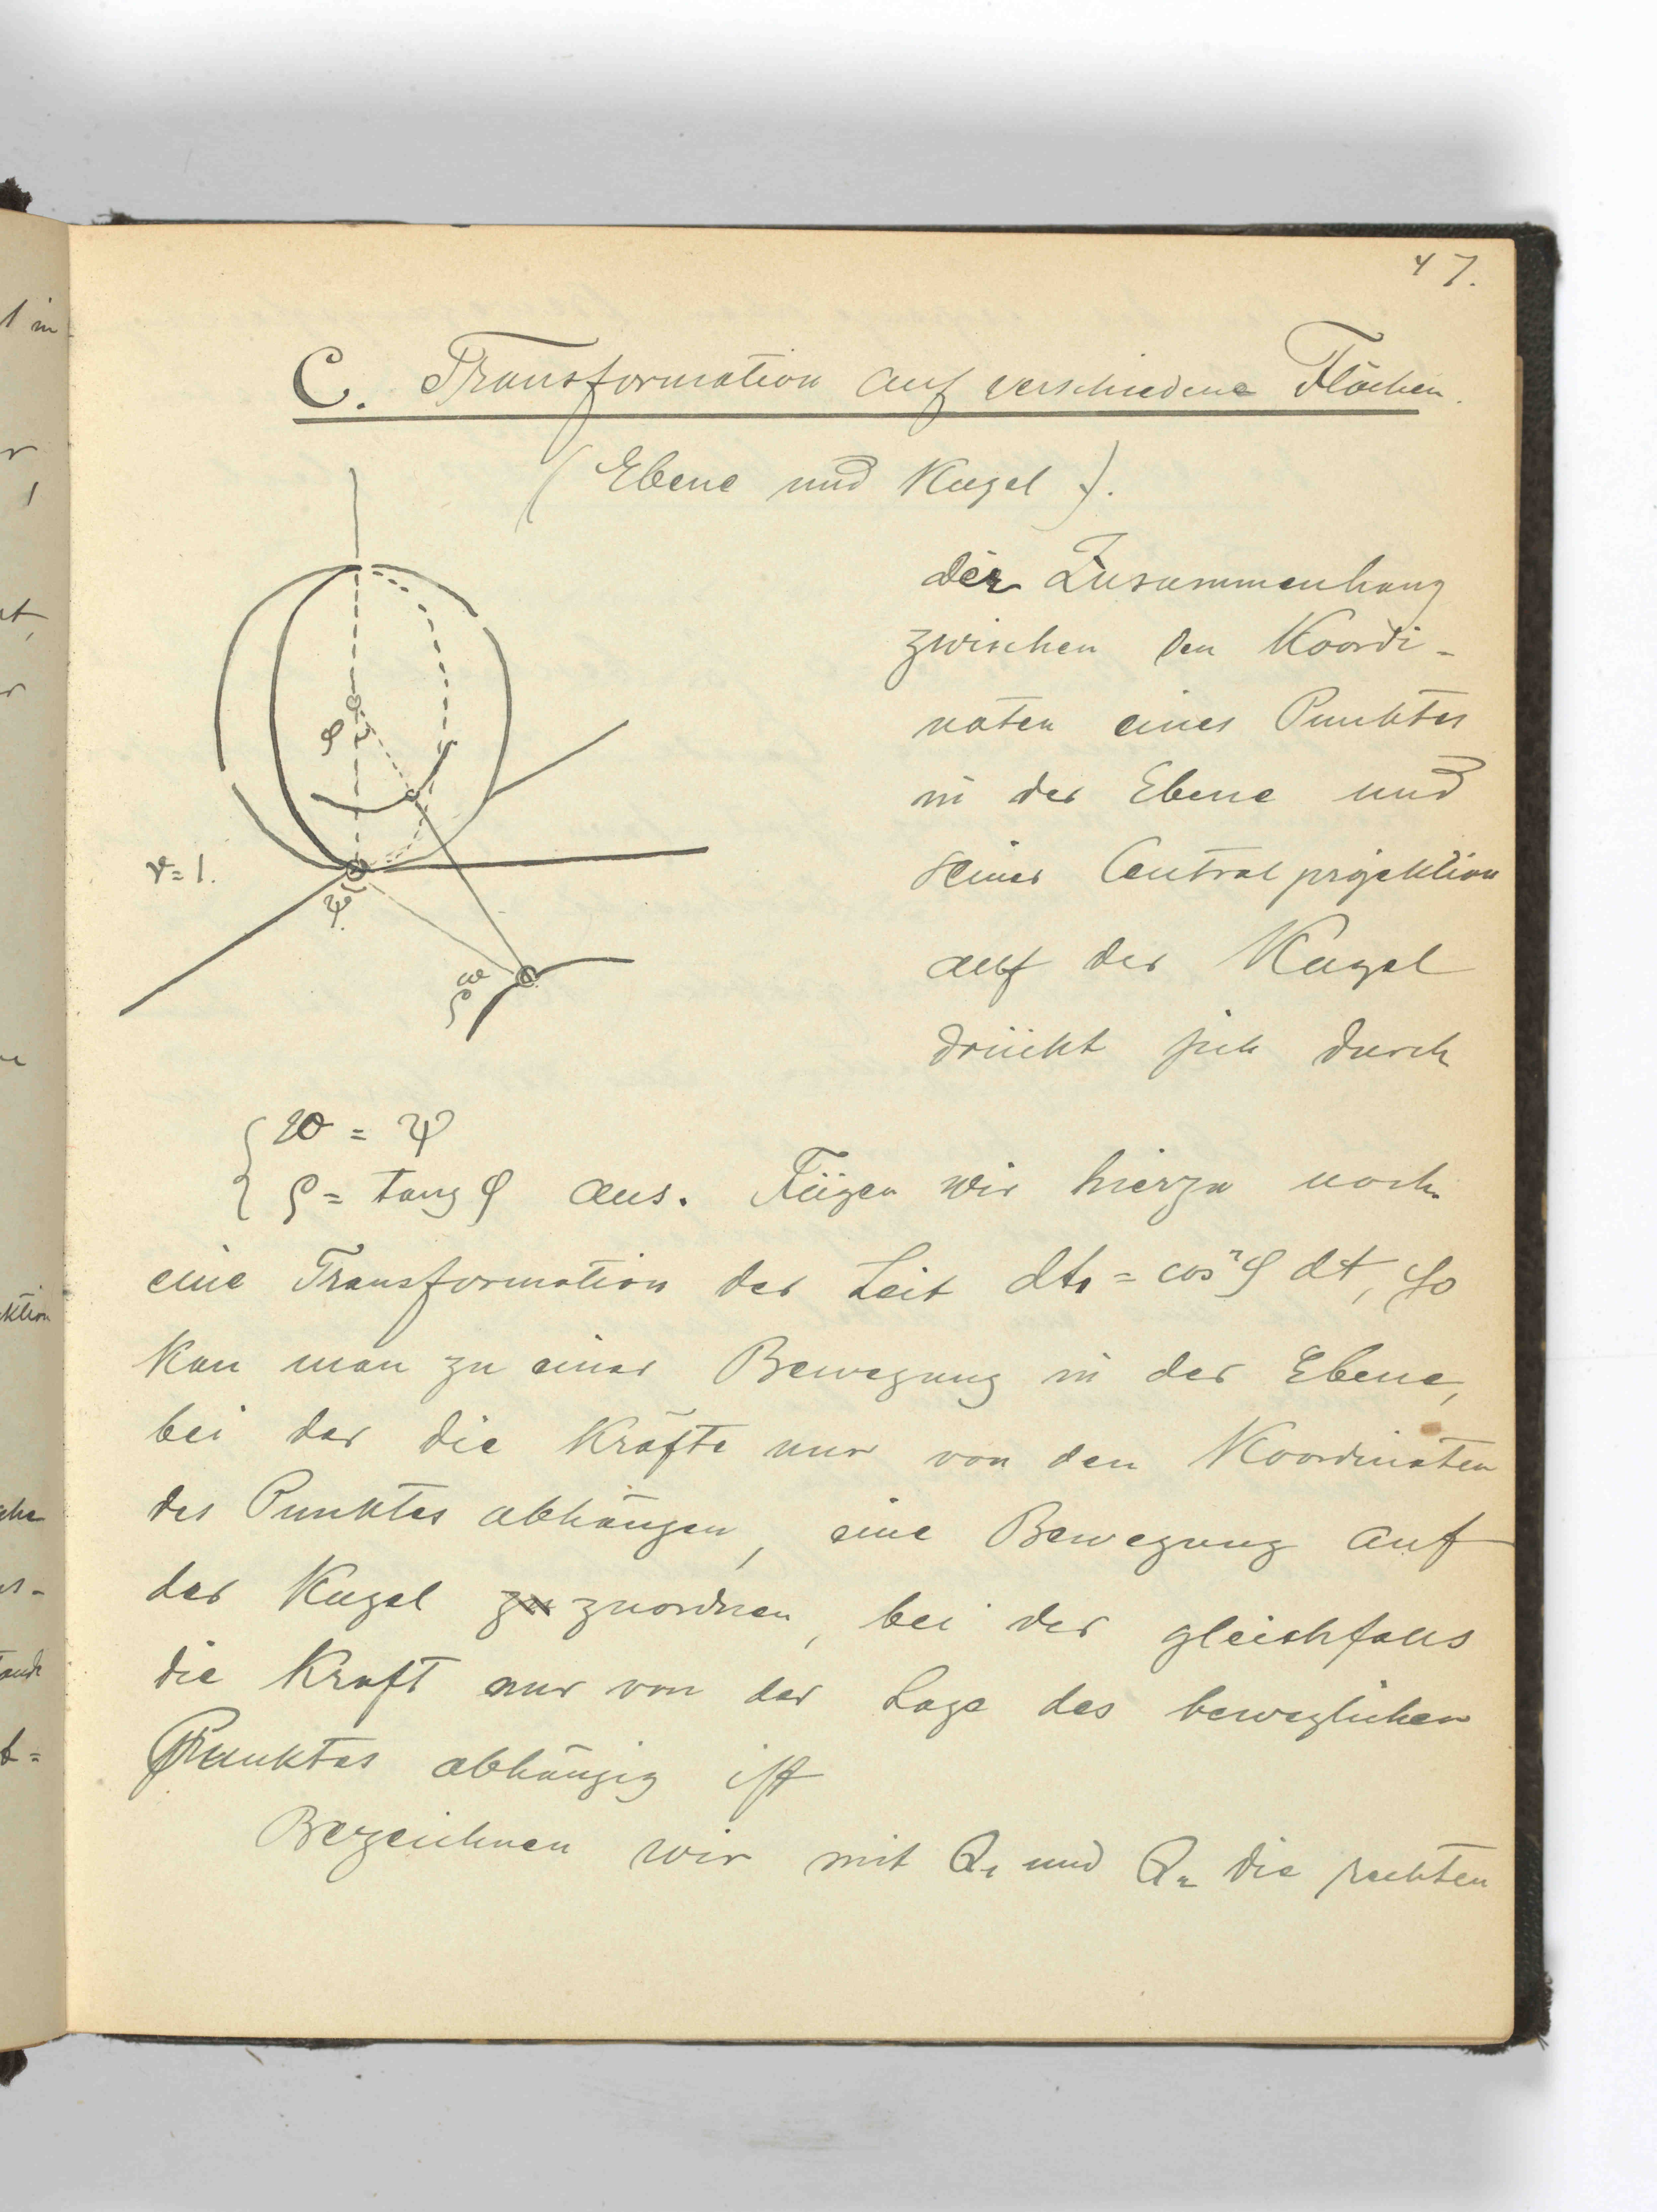 47.
C. Transformation auf verschiedene Flächen.
(Ebene und Kugel).
der Zusammenhang
zwischen den Koordi-
naten eines Punktes
in der Ebene und
seiner Central projektion
auf der Kugel
drückt sich durch
φ
r=1.
ψ.
ω
ρ
{ ω = ψ
ρ = tang φ aus. Fügen wir hierzu noch
eine Transformation der Zeit dt₁ = cos²φ dt, so
kan man zu einer Bewegung in der Ebene,
bei der die Kräfte nur von den Koordinaten
des Punktes abhängen, eine Bewegung auf
der Kugel zu zuordnen, bei der gleichfalls
die Kraft nur von der Lage des beweglichen
Punktes abhängig ist
Bezeichnen wir mit Q₁ und Q₂ die rechten
1 in
r
1
r
ktion
che
t=